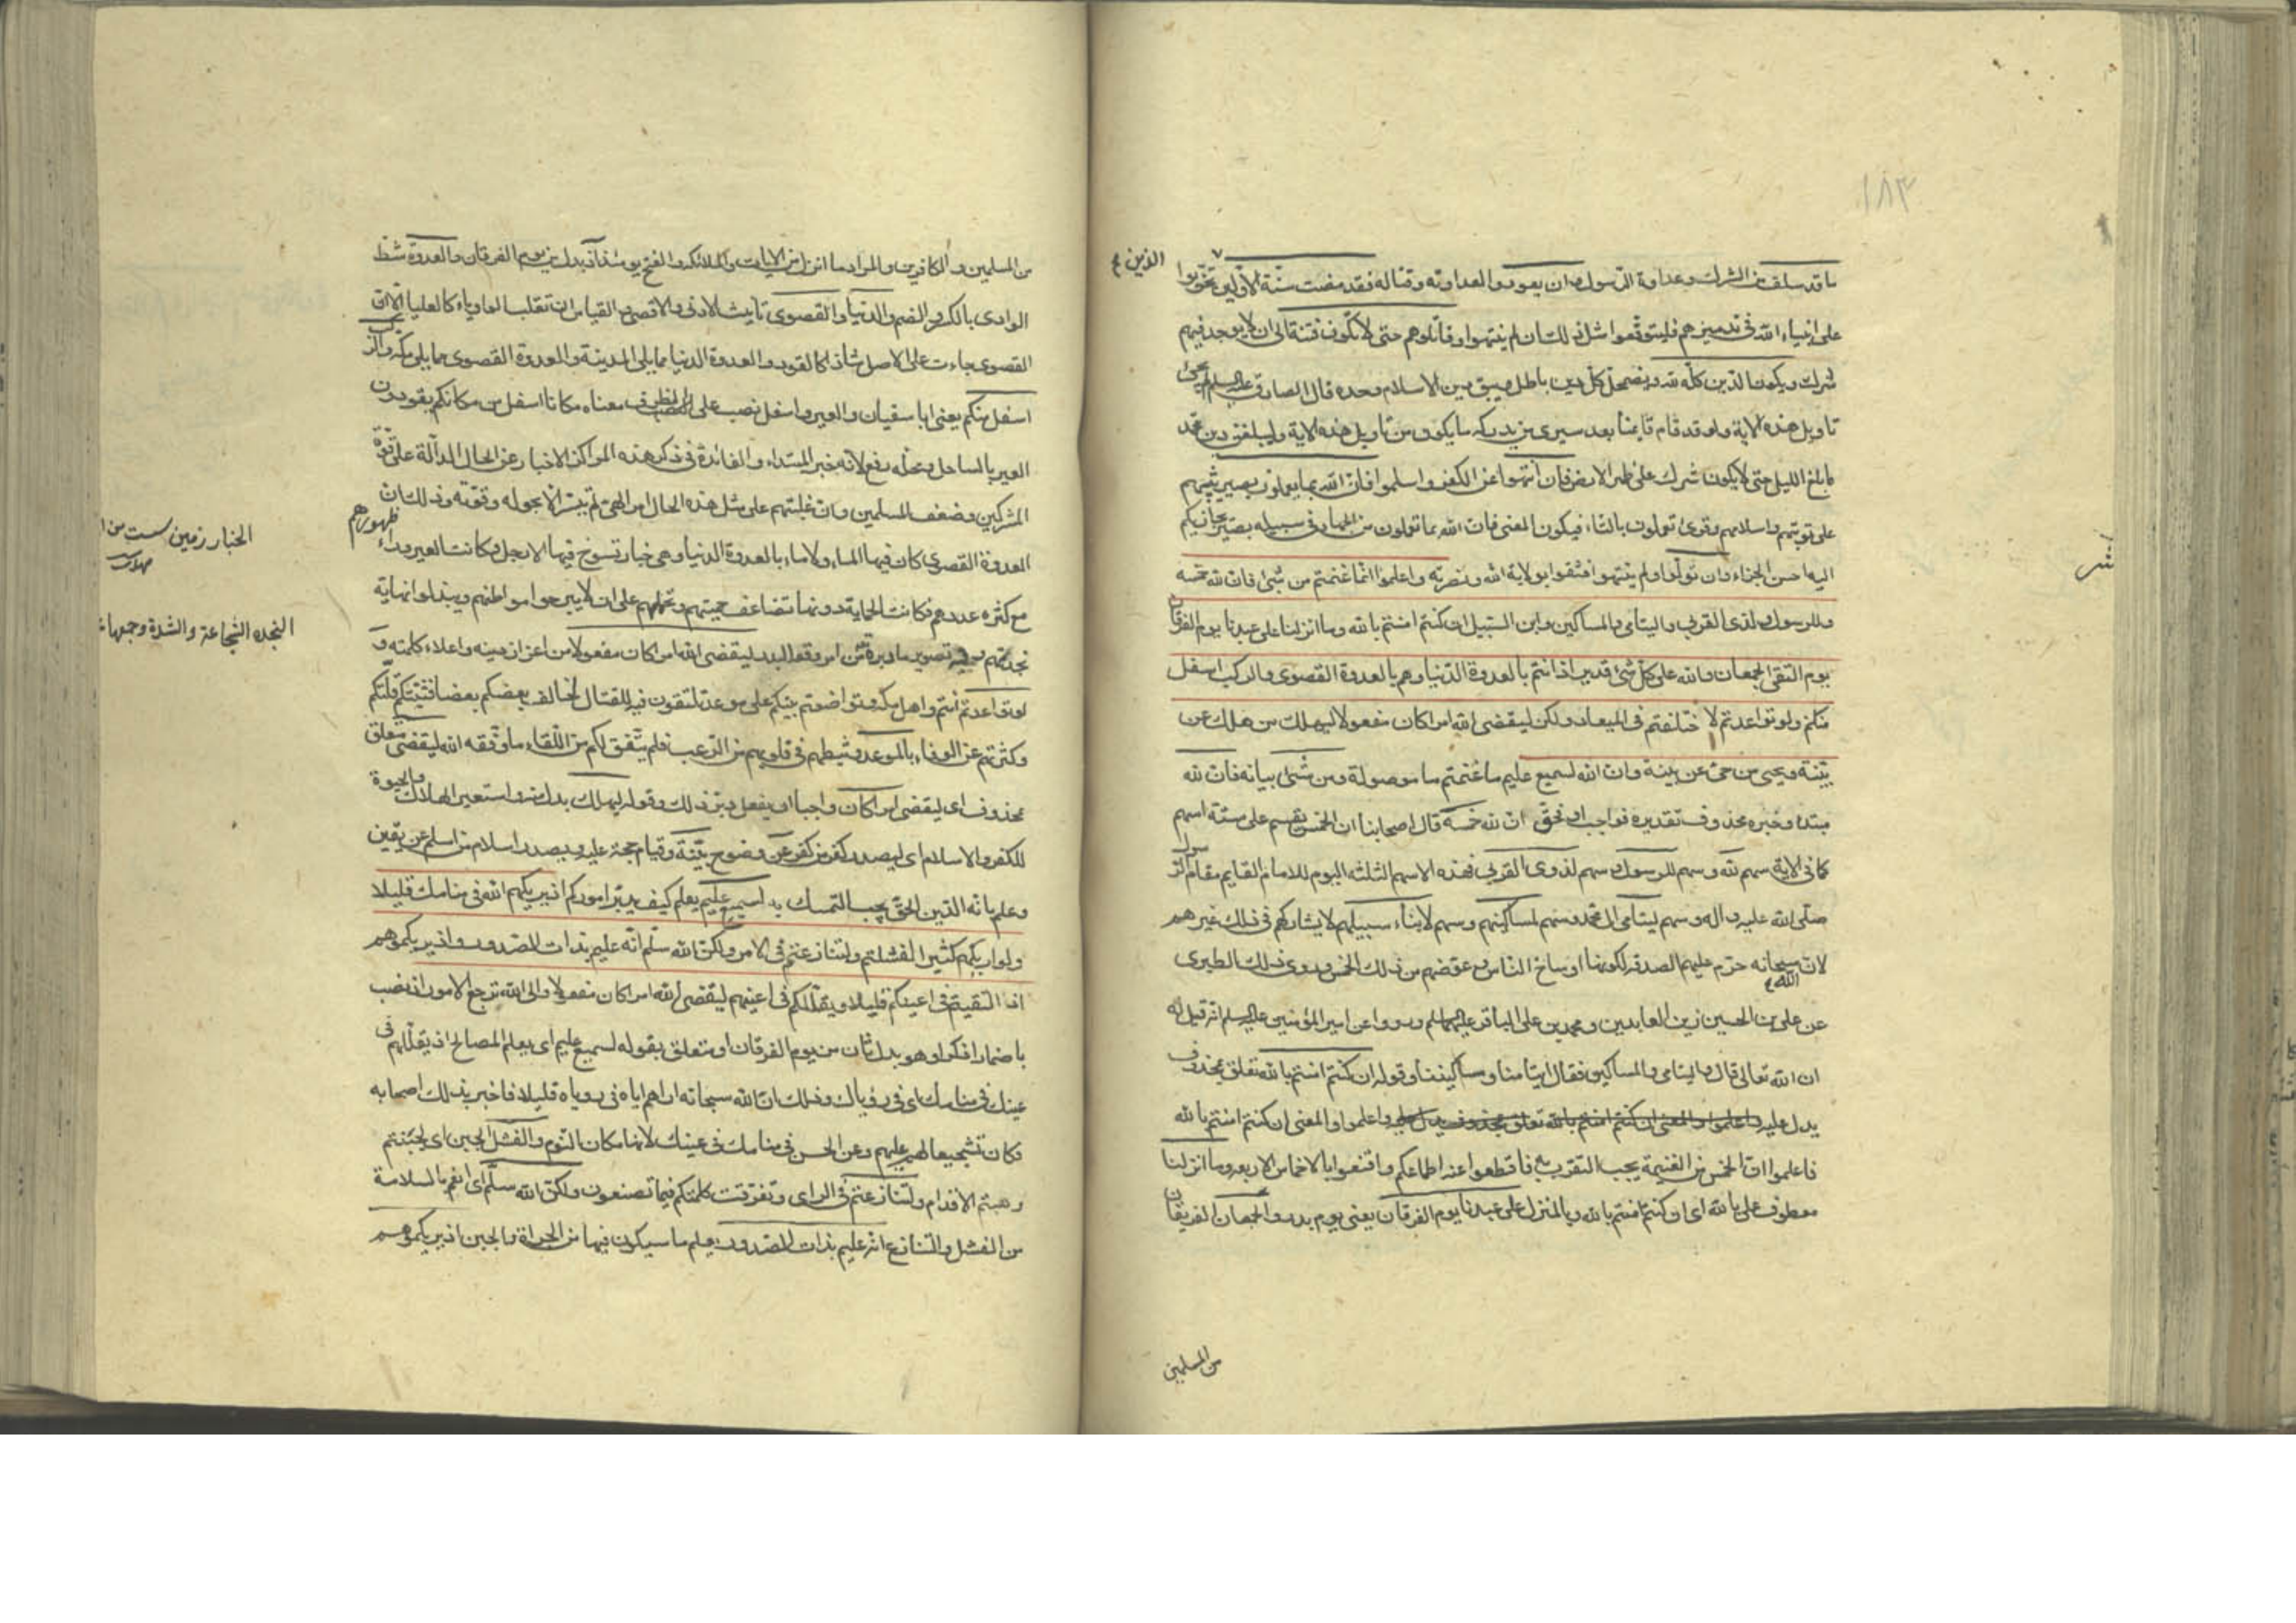 ١٨٣
ما قد سلف من الشرك وعداوة الرسول وان يعودوا لعداوته وقتاله فقد مضت سنة الاولين تحزبوا
الذين
على انبياء الله في تدميرهم فليتوقعوا مثل ذلك ان لم ينتهوا وقاتلوهم حتى لا تكون فتنة الى ان لا يوجد فيهم
شرك ويكون الدين كله لله ويضمحل كل دين باطل ويبقى دين الاسلام وحده قال الصادق عليه السلام لم يجئ
تاويل هذه الاية ولو قد قام قائمنا بعد سيرى من يدركه ما يكون من تاويل هذه الاية وليبلغن دين محمد
ما بلغ الليل حتى لا يكون شرك على ظهر الارض فان انتهوا عن الكفر واسلموا فان الله بما يعملون بصير يثيبهم
على توبتهم واسلامهم وقرئ تعملون بالتاء فيكون المعنى فان الله بما تعملون من الجهاد في سبيله بصير يجازيكم
اليه احسن الجزاء وان تولوا ولم ينتهوا فثقوا بولاية الله ونصرته واعلموا انما غنمتم من شئ فان لله خمسه
وللرسول ولذى القربى واليتامى والمساكين وابن السبيل ان كنتم امنتم بالله وما انزلنا على عبدنا يوم الفرقان
يوم التقى الجمعان والله على كل شئ قدير اذ انتم بالعدوة الدنيا وهم بالعدوة القصوى والركب اسفل
منكم ولو تواعدتم لاختلفتم في الميعاد ولكن ليقضى الله امرا كان مفعولا ليهلك من هلك عن
بينة ويحيى من حى عن بينة وان الله لسميع عليم ما غنمتم ما موصولة ومن شئ بيانه فان لله
مبتدا وخبره محذوف تقديره فواجب او فحق ان لله خمسه قال اصحابنا ان الخمس يقسم على ستة اسهم
كما في الاية سهم لله وسهم للرسول وسهم لذوى القربى فهذه الاسهم الثلثة اليوم للامام القايم مقام الرسول
صلى الله عليه واله وسهم ليتامى ال محمد وسهم لمساكينهم وسهم لابناء سبيلهم لا يشاركهم في ذلك غيرهم
لان الله سبحانه حرم عليهم الصدقة لكونها اوساخ الناس وعوضهم من ذلك الخمس وروى ذلك الطبرى
عن على بن الحسين زين العابدين ومحمد بن على الباقر عليهما السلام ورووا عن امير المؤمنين عليه السلام انه قيل له
ان الله تعالى قال واليتامى والمساكين فقال ايتامنا ومساكيننا وقوله ان كنتم امنتم بالله تعلق بمحذوف
يدل عليه واعلموا والمعنى ان كنتم امنتم بالله تعلق بمحذوف يدل عليه واعلموا والمعنى ان كنتم امنتم بالله
فاعلموا ان الخمس من الغنيمة يجب التقرب به فاقطعوا عنه اطماعكم واقتنعوا بالاخماس الاربعة وما انزلنا
معطوف على بالله اى ان كنتم امنتم بالله وبالمنزل على عبدنا يوم الفرقان يعنى يوم بدر والجمعان الفريقان
من المسلمين
من المسلمين والكافرين والمراد ما انزل من الايات والملائكة والفتح يومئذ اذ بدل من يوم الفرقان والعدوة شط
الوادى بالكسر والضم والدنيا والقصوى تانيث الادنى والاقصى والقياس ان تقلب الواو ياء كالعليا الا ان
القصوى جاءت على الاصل شاذا كالقود والعدوة الدنيا مما يلى المدينة والعدوة القصوى مما يلى مكة والركب
اسفل منكم يعنى ابا سفيان والعير واسفل نصب على الظرف معناه مكانا اسفل من مكانكم يقودون
العير بالساحل ومحله رفع لانه خبر المبتداء والفائدة في ذكر هذه المراكز الاخبار عن الحال الدالة على قوة
المشركين وضعف المسلمين وان غلبتهم على مثل هذه الحال امر الهى لم يتيسر الا بحوله وقوته وذلك ان
العدوة القصوى كان فيها الماء ولا ماء بالعدوة الدنيا وهى خبار تسوخ فيها الارجل وكانت العير وراء ظهورهم
الخبار زمين سست من
النجدة الشجاعة والشدة وجمعها
مع كثرة عددهم فكانت الحماية دونها تضاعف حميتهم وتحملهم على ان لا يبرحوا مواطنهم ويبذلوا نهاية
نجدتهم وفيه تصوير ما دبره من امر وقعة بدر ليقضى الله امرا كان مفعولا من اعزاز دينه واعلاء كلمته و
لو تواعدتم انتم واهل مكة وتواضعتم بينكم على موعد تلتقون فيه للقتال لخالف بعضكم بعضا فثبتكم قلتكم
وكثرتهم عن الوفاء بالموعد وثبطهم في قلوبهم من الرعب فلم يتفق لكم من اللقاء ما وفقه الله ليقضى متعلق
بمحذوف اى ليقضى امرا كان واجبا ان يفعل دبر ذلك وقوله ليهلك بدل منه واستعير الهلاك والحيوة
للكفر والاسلام اى ليصدر كفر من كفر عن وضوح بينة وقيام حجة عليه ويصدر اسلام من اسلم عن يقين
وعلم بانه الدين الحق يجب التمسك به لسميع عليم يعلم كيف يدبر اموركم اذ يريكهم الله في منامك قليلا
ولو اريكهم كثيرا لفشلتم ولتنازعتم في الامر ولكن الله سلم انه عليم بذات الصدور واذ يريكموهم
اذ التقيتم في اعينكم قليلا ويقللكم في اعينهم ليقضى الله امرا كان مفعولا والى الله ترجع الامور اذ نصب
باضمار اذكر او هو بدل ثان من يوم الفرقان او متعلق بقوله لسميع عليم اى يعلم المصالح اذ يقللهم في
عينك في منامك اى في رؤياك وذلك ان الله سبحانه اراهم اياه في روياه قليلا فاخبر بذلك اصحابه
فكان تشجيعا لهم عليهم وعن الحسن في منامك في عينك لانها مكان النوم والفشل الجبن اى لجبنتم
وهبتم الاقدام ولتنازعتم في الراى وتفرقت كلمتكم فيما تصنعون ولكن الله سلم اى انعم بالسلامة
من الفشل والتنازع انه عليم بذات الصدور يعلم ما سيكون فيها من الجراة والجبن اذ يريكموهم